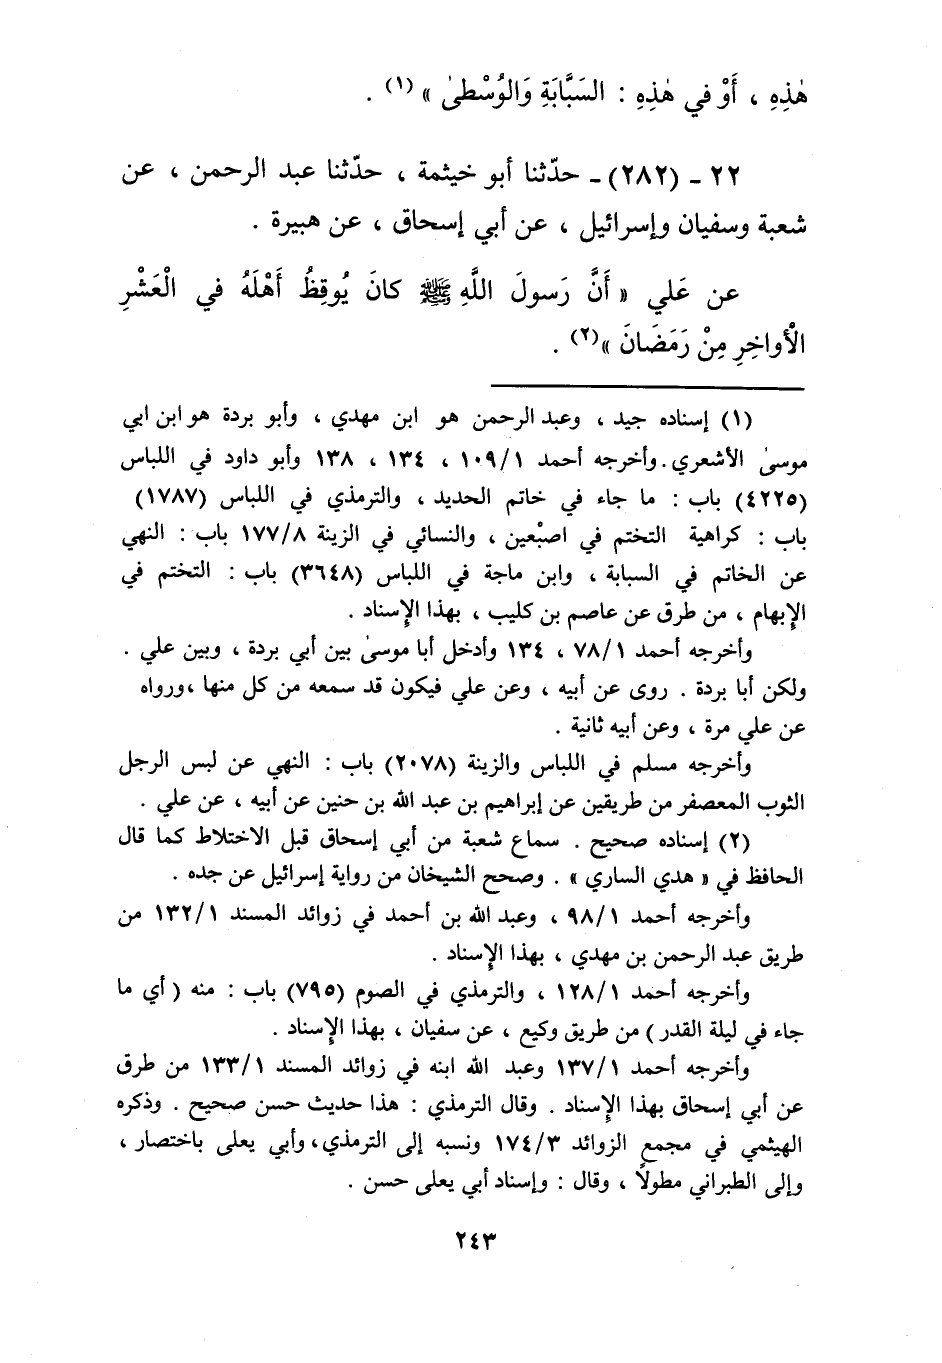 هٰذِهِ ، أَوْ في هٰذِهِ : السَبَّابَةِ وَالوُسْطىٰ » (١) .
٢٢ ـ (٢٨٢) ـ حدّثنا أبو خيثمة ، حدّثنا عبد الرحمن ، عن
شعبة وسفيان وإسرائيل ، عن أبي إسحاق ، عن هبيرة .
عن عَلي « أَنَّ رَسولَ اللَّهِ ﷺ كانَ يُوقِظُ أَهْلَهُ في الْعَشْرِ
الْأَواخِرِ مِنْ رَمَضَانَ »(٢) .
(١) إسناده جيد ، وعبد الرحمن هو ابن مهدي ، وأبو بردة هو ابن ابي
موسىٰ الأشعري . وأخرجه أحمد ١٠٩/١ ، ١٣٤ ، ١٣٨ وأبو داود في اللباس
(٤٢٢٥) باب : ما جاء في خاتم الحديد ، والترمذي في اللباس (١٧٨٧)
باب : كراهية التختم في اصبْعين ، والنسائي في الزينة ١٧٧/٨ باب : النهي
عن الخاتم في السبابة ، وابن ماجة في اللباس (٣٦٤٨) باب : التختم في
الإبهام ، من طرق عن عاصم بن كليب ، بهذا الإسناد .
وأخرجه أحمد ٧٨/١ ، ١٣٤ وأدخل أبا موسىٰ بين أبي بردة ، وبين علي .
ولكن أبا بردة . روى عن أبيه ، وعن علي فيكون قد سمعه من كل منها ،ورواه
عن علي مرة ، وعن أبيه ثانية .
وأخرجه مسلم في اللباس والزينة (٢٠٧٨) باب : النهي عن لبس الرجل
الثوب المعصفر من طريقين عن إبراهيم بن عبد الله بن حنين عن أبيه ، عن علي .
(٢) إسناده صحيح . سماع شعبة من أبي إسحاق قبل الاختلاط كما قال
الحافظ في « هدي الساري » . وصحح الشيخان من رواية إسرائيل عن جده .
وأخرجه أحمد ٩٨/١ ، وعبد الله بن أحمد في زوائد المسند ١٣٢/١ من
طريق عبد الرحمن بن مهدي ، بهذا الإسناد .
وأخرجه أحمد ١٢٨/١ ، والترمذي في الصوم (٧٩٥) باب : منه ( أي ما
جاء في ليلة القدر ) من طريق وكيع ، عن سفيان ، بهذا الإسناد .
وأخرجه أحمد ١٣٧/١ وعبد الله ابنه في زوائد المسند ١٣٣/١ من طرق
عن أبي إسحاق بهذا الإسناد . وقال الترمذي : هذا حديث حسن صحيح . وذكره
الهيثمي في مجمع الزوائد ١٧٤/٣ ونسبه إلى الترمذي، وأبي يعلى باختصار ،
وإلى الطبراني مطولاً ، وقال : وإسناد أبي يعلى حسن .
٢٤٣